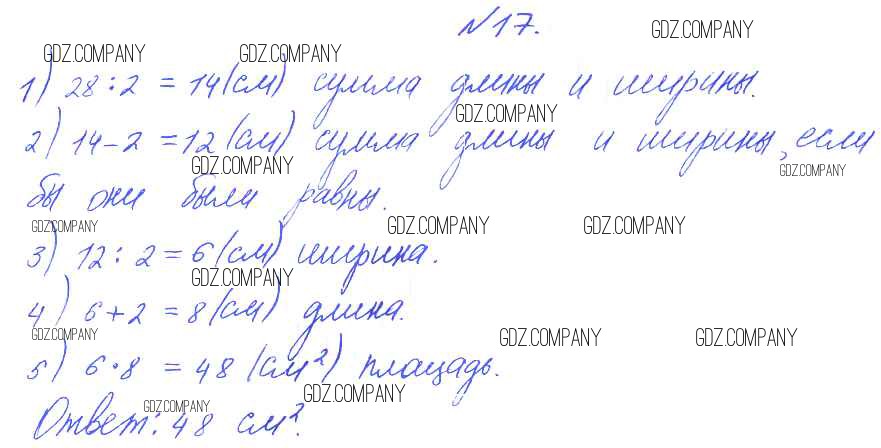 №17. GDZ.COMPANY
GDZ.COMPANY GDZ.COMPANY
1) 28:2 = 14 (см) сумма длины и ширины.
GDZ.COMPANY
2) 14-2 = 12 (см) сумма длины и ширины, если
GDZ.COMPANY GDZ.COMPANY
бы они были равны.
GDZ.COMPANY GDZ.COMPANY GDZ.COMPANY
3) 12:2 = 6 (см) ширина.
GDZ.COMPANY
4) 6+2 = 8 (см) длина.
GDZ.COMPANY GDZ.COMPANY GDZ.COMPANY
5) 6·8 = 48 (см²) площадь.
GDZ.COMPANY GDZ.COMPANY
Ответ: 48 см².